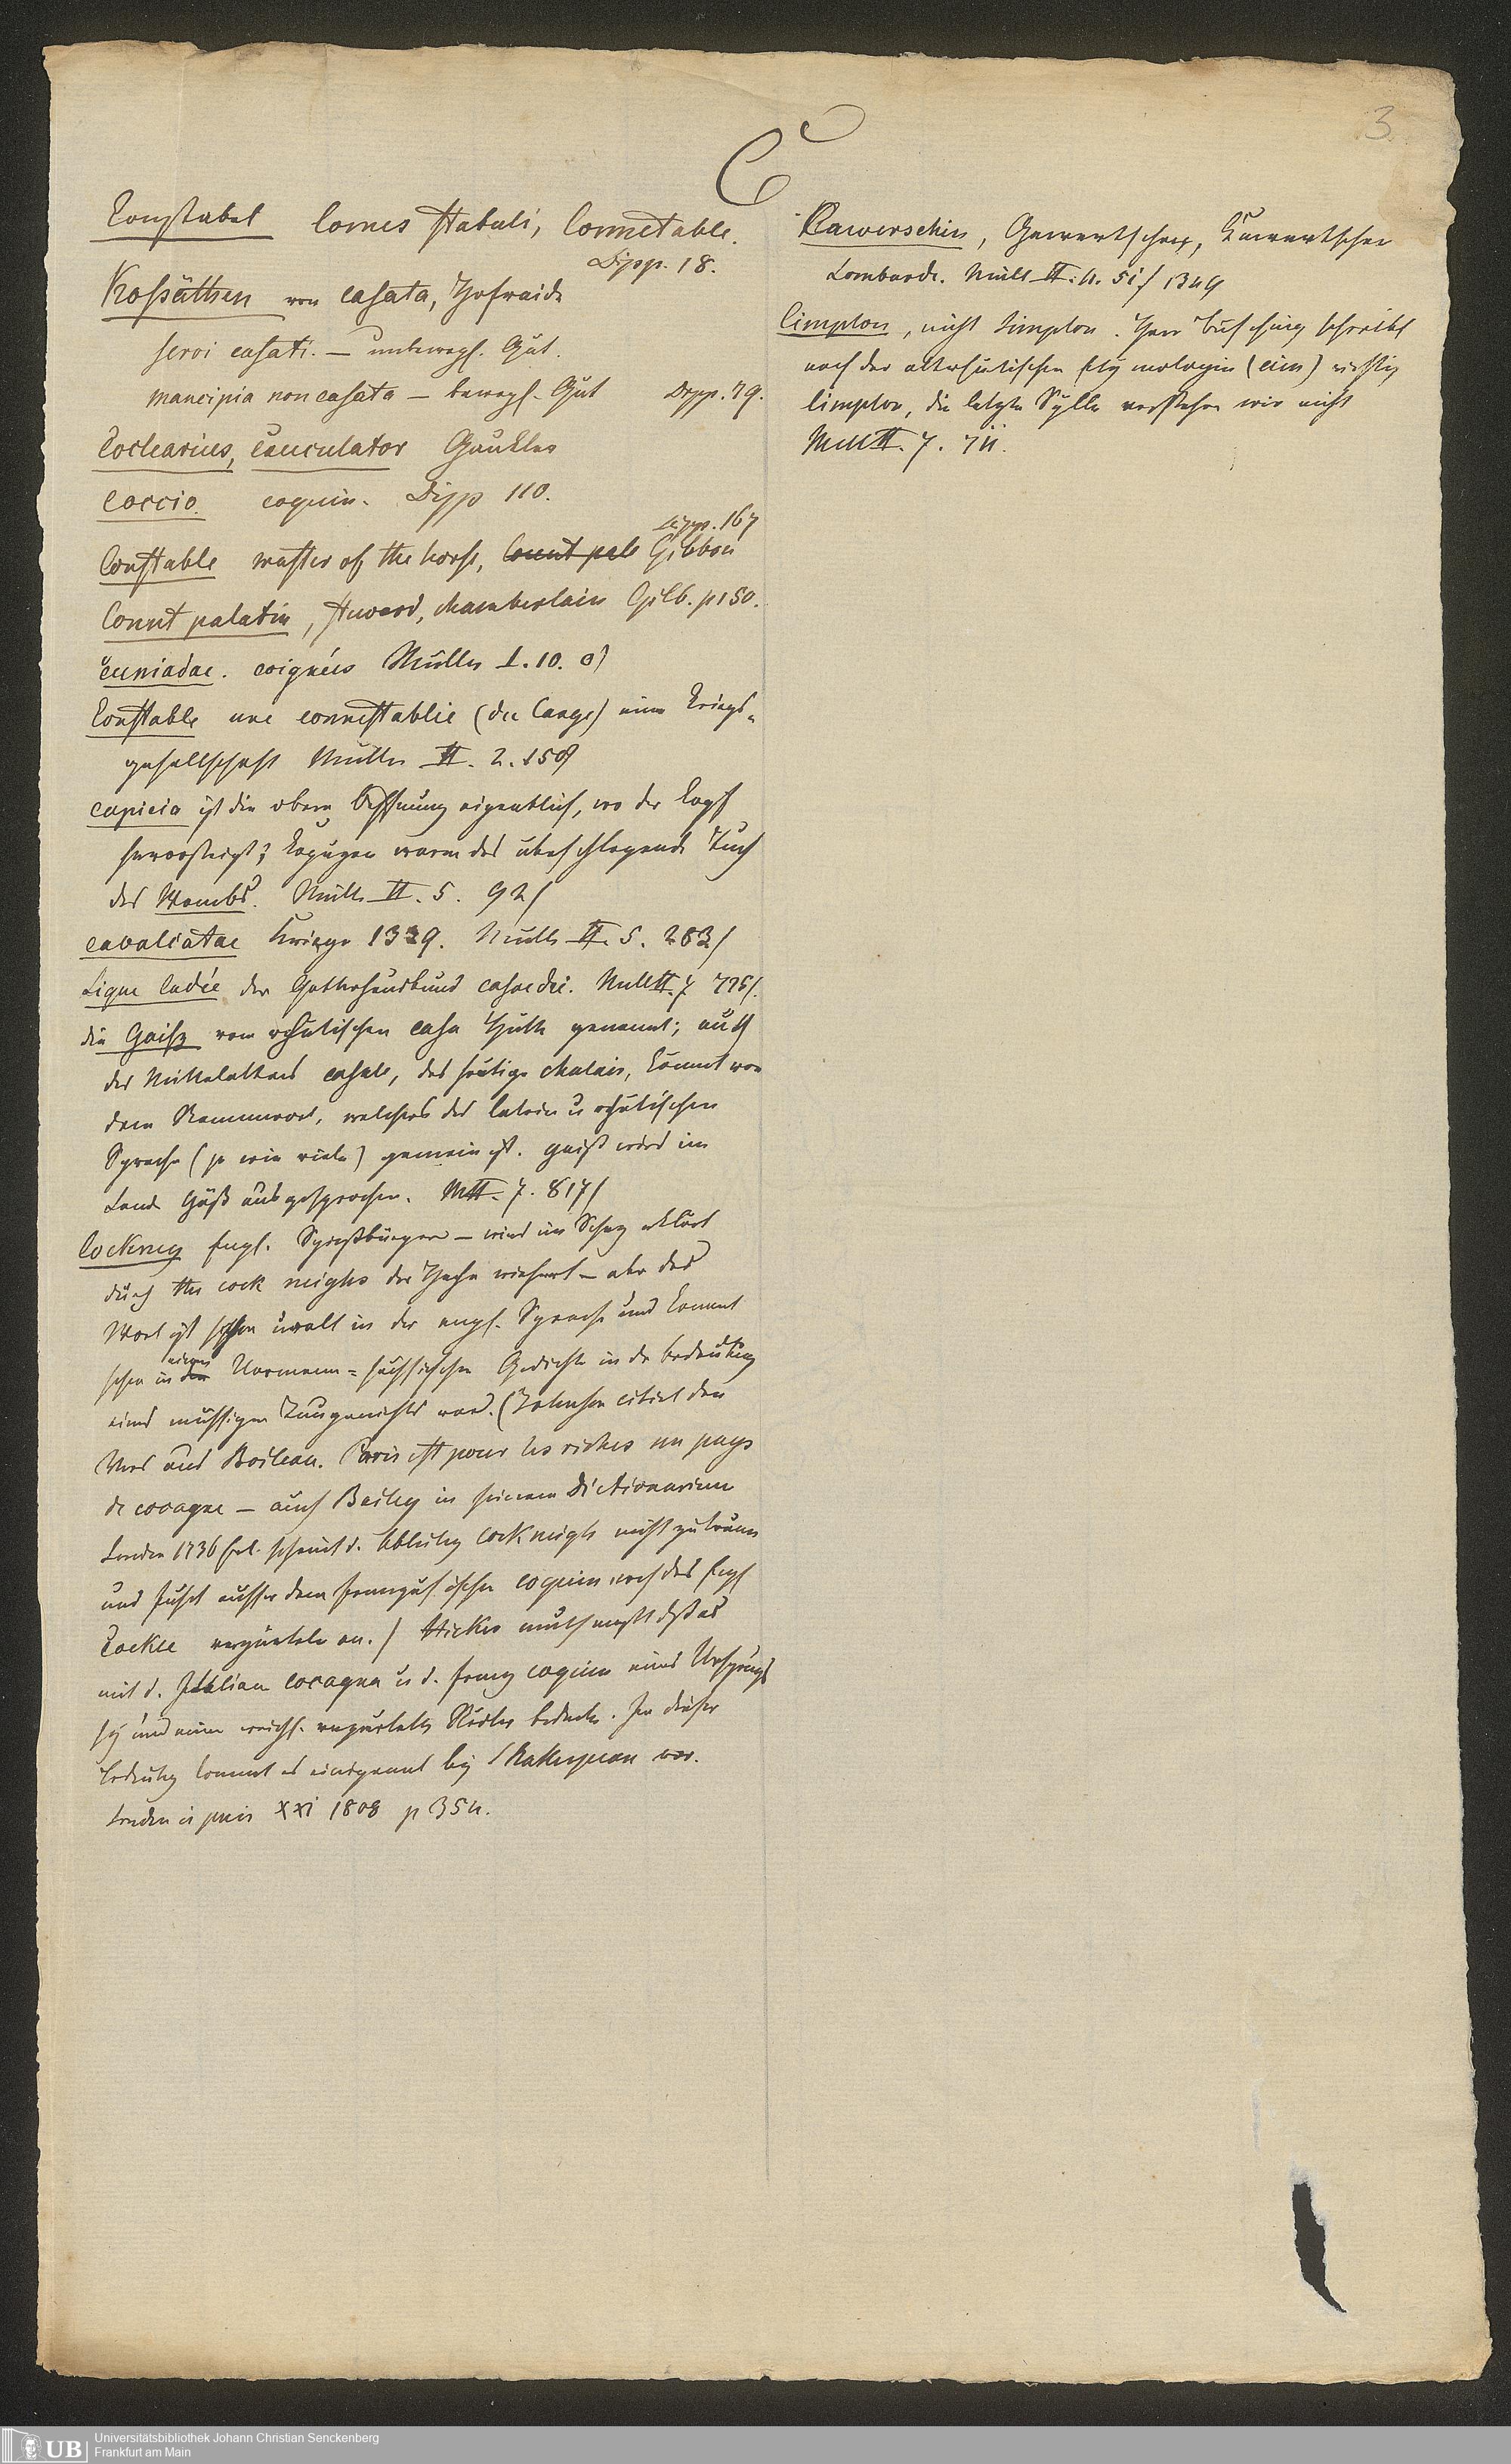 3
C
Konstabel Comes stabuli, Connetable.
Dipp. 18.
Kossäthen von casata, Hofraide
servi casati. — unbewegl. Gut.
mancipia non casata — bewegl. Gut Dipp. 79.
Coclearius, Cauculator Gaukler
Coccio. coquin. Dipp 110.
Dipp. 167
Constable master of the horse, Count pala Gibbon
Count palatin, steward, chamberlain Gibb. p 150.
cuniadae. coignées Müller I. 10.
Constable une connestablie (du Cange) eine Kriegs-
gesellschaft Müller II. 2. 158
capicia ist die obere Oeffnung eigentlich, wo der Kopf
hervorsteigt; Kapuzen waren das überschlagende Tuch
des Wambs. Müll II. 5. 92
cavalcatae Kriege 1329. Müll II. 5. 283
Ligue Cadée der Gotteshausbund casae dei. Müll II. 7 775
die Gaiss vom rhätischen casa Hütte genannt; auch
des Mittelalters casale, das heutige chalais, kommt von
dem Stammwort, welches der latein u rhätischen
Sprache (so wie viele) gemein ist. gaiss wird im
Lande Gäss ausgesprochen. M II. 7. 817
Cockney Engl. Spiessbürger — wird im Scherz erklärt
durch the cock neighs der Hahn wiehert — aber das
Wort ist schon uralt in der engl. Sprache und kommt
einem
schon in der Normann-sächsischen Gedichte in der Bedeutung
eines müssigen Taugenichts vor. (Johnson citirt den
Vers aus Boileau. Paris est pour les riches un pays
de cocagne — auch Bailey in seinem Dictionarium
London 1736 fol. scheint d. Ableitg cock neighs nicht zu trauen
und führt ausser dem französischen coquin noch das Engl
Cockle verzärteln an.) Hickes muthmasst dass es
mit d. Italian cocagna u d. franz coquin eines Ursprungs
sey und einen weichl. verzärtelten Städter bedeute. In dieser
Bedeutg kommt es einigemal bey Shakespeare vor.
London u paris XXI 1808 p 354.
Kawerschin, Gawertschen, Kawertschen
Lombarde. Müll II. 4. 51 1349
Cimplon, nicht Simplon. Herr Büsching schreibt
nach der altrhätischen Etymologie (cim) richtig
Cimplon, die letzte Sylbe verstehen wir nicht
Müll II. 7. 74.
UB
Universitätsbibliothek Johann Christian Senckenberg
Frankfurt am Main